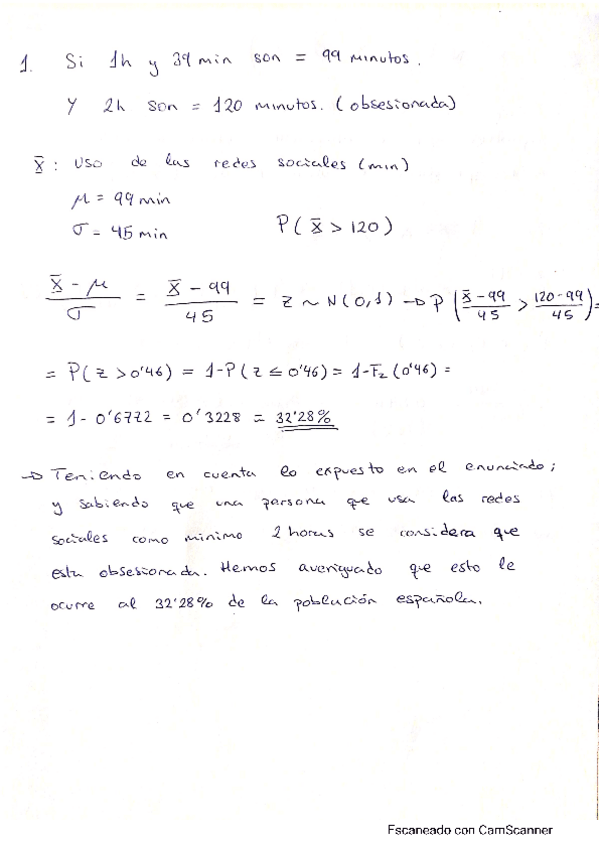 1. Si 1h y 39 min son = 99 minutos.
Y 2h son = 120 minutos. (obsesionada)
X̄: uso de las redes sociales (min)
μ = 99 min
σ = 45 min P(X̄ > 120)
(X̄ - μ)/σ = (X̄ - 99)/45 = Z ~ N(0,1) → P((X̄ - 99)/45 > (120 - 99)/45) =
= P(Z > 0'46) = 1 - P(Z ≤ 0'46) = 1 - Fz(0'46) =
= 1 - 0'6772 = 0'3228 = 32'28%
→ Teniendo en cuenta lo expuesto en el enunciado;
y sabiendo que una persona que usa las redes
sociales como mínimo 2 horas se considera que
esta obsesionada. Hemos averiguado que esto le
ocurre al 32'28% de la población española.
Escaneado con CamScanner